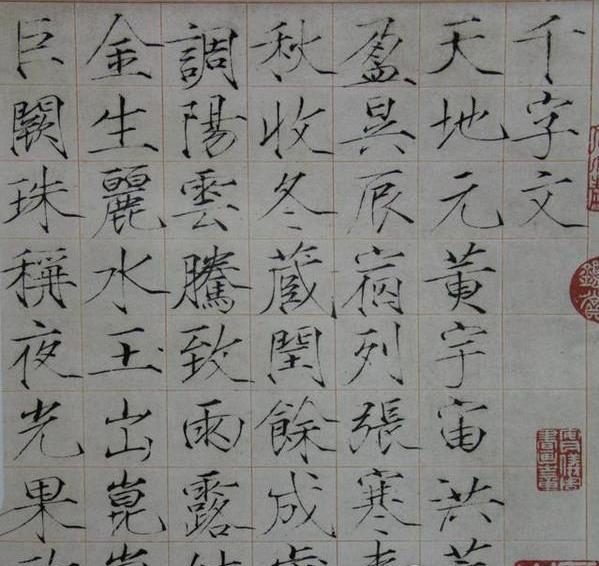 千字文
天地元黃宇宙洪
盈昃辰宿列張寒
秋收冬蔵閏餘成
調陽雲騰致雨露
金生麗水玉出崑
巨闕珠稱夜光果